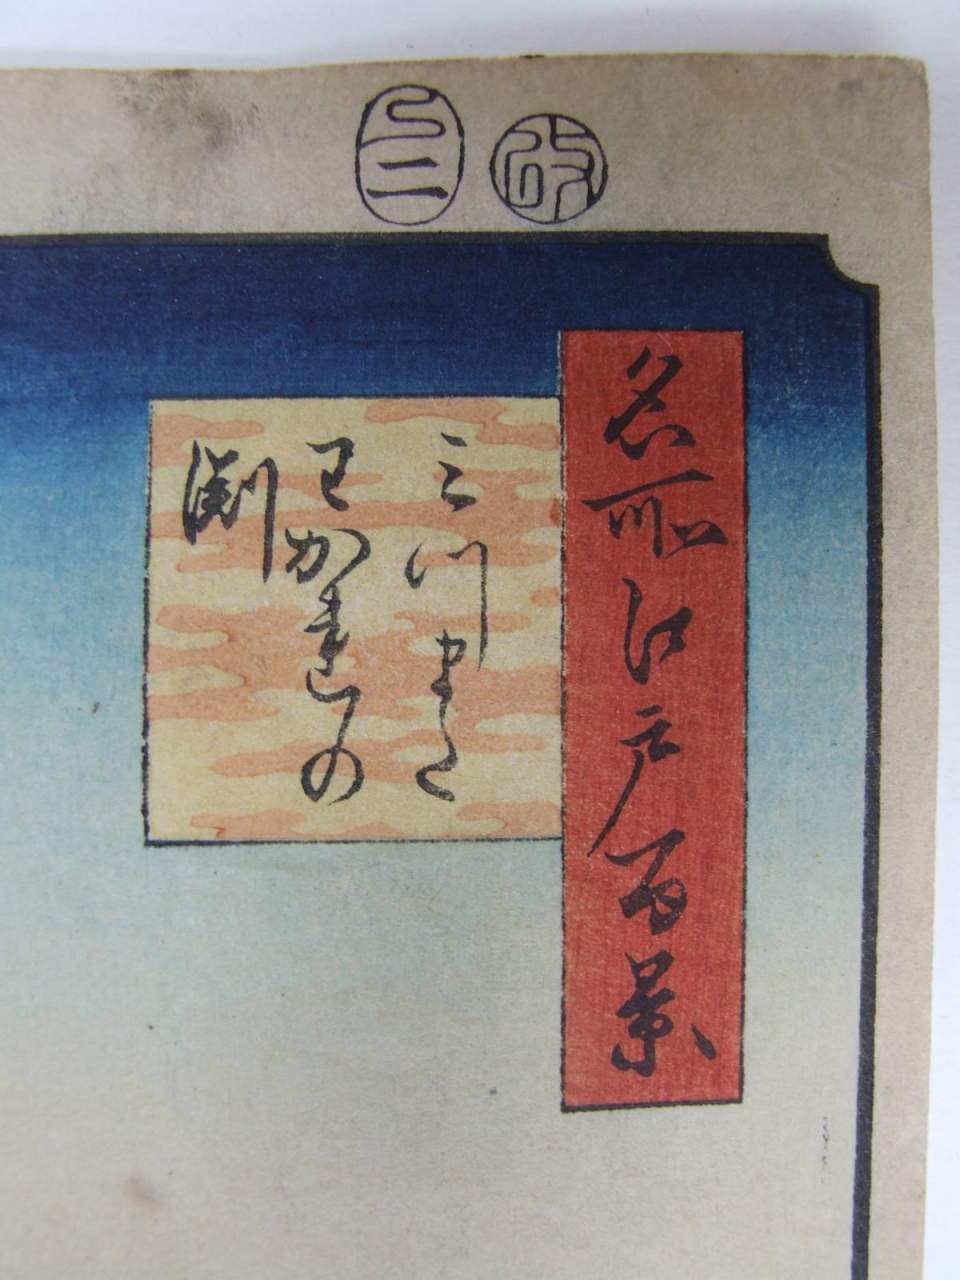 名所江戸百景
三つまた
わかれの
淵
改
巳二